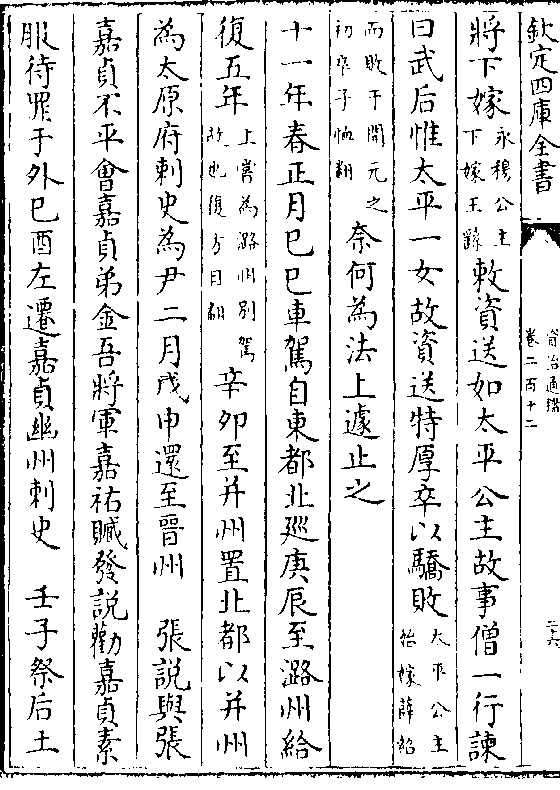 欽定四庫全書
資治通鑑
卷二百十二
二六
將下嫁永穆公主下嫁王繇敕資送如太平公主故事僧一行諫
曰武后惟太平一女故資送特厚卒以驕敗太平公主始嫁薛紹
而敗于開元之初卒子恤翻奈何為法上遽止之
十一年春正月己巳車駕自東都北廵庚辰至潞州給
復五年上嘗為潞州别駕故也復方目翻辛卯至并州置北都以并州
為太原府刺史為尹二月戊申還至晉州　張説與張
嘉貞不平會嘉貞弟金吾將軍嘉祐贓發説勸嘉貞素
服待罪于外己酉左遷嘉貞幽州刺史　壬子祭后土